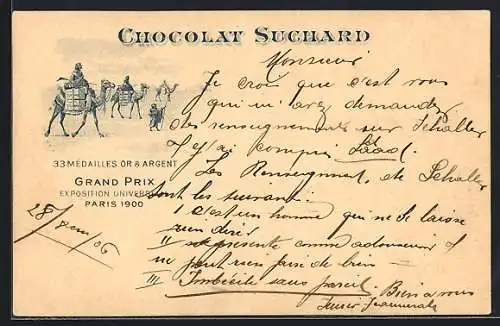 CHOCOLAT SUCHARD
Monsieur
Je crois que c'est vous
qui m'avez demandez
des renseignements sur Schaller
33 MÉDAILLES OR & ARGENT
GRAND PRIX
EXPOSITION UNIVERSELLE
PARIS 1900
28/ /06
et j'ai compris
Les Renseignmts de Schaller
sont les suivants:
I c'est un homme qui ne se laisse
rien dire
II se présente comme
ne peut rien faire de bien –
III Imbécile sans pareil. Bien à vous